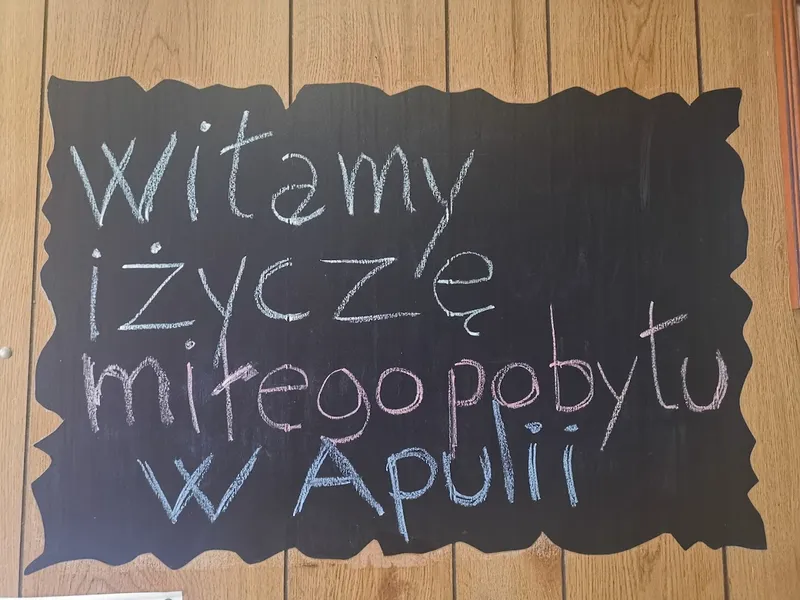 Witamy
i życzę
miłego pobytu
w Apulii